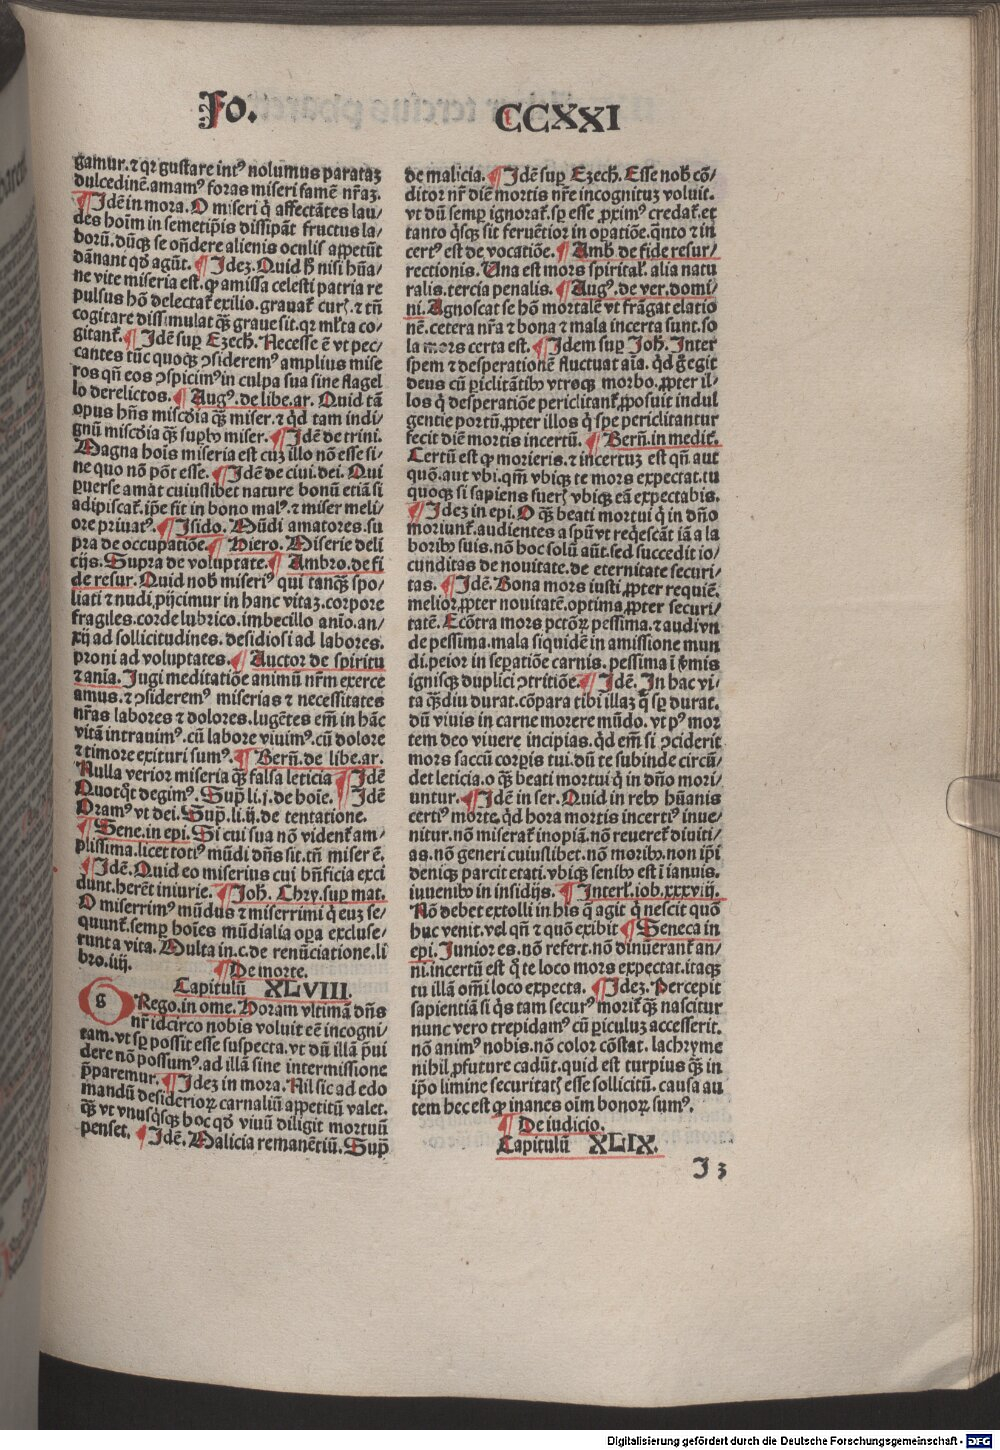 Fo. CCXXI
gamur.⁊ qꝛ guſtare intꝰ nolumus parataʒ
dulcedinē.amamꝰ foras miſeri famē nr̄aʒ.
¶ Idē in mora. O miſeri q̇ affectātes lau⸗
des hoīm in ſemetip̄is diſſipāt fructus la⸗
boꝝ.dūqʒ ſe on̄dere alienis oculis appetūt
dānant qd̛ agūt. ¶ Ideʒ. Quid h̛ niſi hūa⸗
ne vite miſeria eſt. ꝙ amiſſa celeſti patria re
pulſus hō delectat̛ exilio. grauat̛ curꝭ.⁊ tn̄
cogitare diſſimulat qʒ̄ graue ſit. qꝛ ml̛ta co⸗
gitant̛. ¶ Idē ſuꝑ Ezech. Neceſſe ē vt pec⸗
cantes tūc quoqʒ ꝯſideremꝰ amplius miſe
ros qn̄ eos ꝯſpicimꝰ in culpa ſua ſine flagel
lo derelictos. ¶ Augꝰ.de libe.ar. Quid tā
opus hn̄s miſc̄dia qʒ̄ miſer.⁊ qd̛ tam indi⸗
gnū miſc̄dia qʒ̄ ſuꝑbꝰ miſer. ¶ Idē de trini.
Magna hoīs miſeria eſt cuʒ illo nō eſſe ſi⸗
ne quo nō pōt eſſe. ¶ Idē de ciui.dei. Qui
ꝑuerſe amāt cuiuſlibet nature bonū etiā ſi
adipiſcat̛. ip̄e fit in bono malꝰ.⁊ miſer meli⸗
ore priuatꝰ. ¶ Iſido. Mūdi amatores.ſu
pra de occupatiōe. ¶ Hiero. Miſerie deli
cijs. Supra de voluptate. ¶ Ambro.de fi
de reſur. Quid nob̛ miſeriꝰ qui tanqʒ̄ ſpo⸗
liati ⁊ nudi ꝓijcimur in hanc vitaʒ.corpore
fragiles.corde lubrico.imbecillo anīo.an⸗
xij ad ſollicitudines. deſidioſi ad labores.
proni ad voluptates. ¶ Auctor de ſpiritu
⁊ aniā. Iugi meditatiōe animū nr̄m exerce
amus.⁊ ꝯſideremꝰ miſerias ⁊ neceſſitates
nr̄as labores ⁊ dolores.lugētes em̄ in hāc
vitā intrauimꝰ.cū labore viuimꝰ.cū dolore
⁊ timore exituri ſumꝰ. ¶ Bern̄.de libe.ar.
Nulla verior miſeria qʒ̄ falſa leticia ¶ Idē
Quotqt̛ degimꝰ. Sup̄ li.j.de hoīe. ¶ Idē
Oramꝰ vt dei. Sup̄.li.ij.de tentatione.
¶ Sene.in epi. Si cui ſua nō vident̛ am⸗
pliſſima.licet totiꝰ mūdi dn̄s ſit.tn̄ miſer ē.
¶ Idē. Quid eo miſerius cui bn̄ficia exci
dunt.herēt iniurie. ¶ Joh. Chry.ſup mat.
O miſerrimꝰ mūdus ⁊ miſerrimi q̇ euʒ ſe⸗
quunt̛.ſemꝑ hoīes mūdialia oꝑa excluſe⸗
runt a vita. Multa in.c.de renūciatione.li
bro.iiij. ¶ De morte.
Capitulū XLVIII.
g Rego.in ome. Horam vltimā dn̄s
nr̄ idcirco nobis voluit eē incogni⸗
tam.vt ſꝑ poſſit eſſe ſuſpecta.vt dū illā p̄ui
dere nō poſſumꝰ.ad illā ſine intermiſſione
p̄paremur. ¶ Ideʒ in mora. Nil ſic ad edo
mandū deſideriorꝝ carnaliū appetitū valet.
qʒ̄ vt vnuſq̇ſqʒ hoc qd̛ viuū diligit mortuū
penſet. ¶ Idē. Malicia remanētiū. Sup̄
de malicia. ¶ Idē ſuꝑ Ezech. Eſſe nob̛ cō⸗
ditor nr̄ diē mortis nr̄e incognituʒ voluit.
vt dū ſemꝑ ignorat̛.ſꝑ eſſe ꝓximꝰ credat̛.et
tanto q̇ſqʒ ſit feruētior in oꝑatiōe.qn̄to ⁊ in
certꝰ eſt de vocatiōe. ¶ Amb̛ de fide reſur⸗
rectionis. Una eſt mors ſpirital̛. alia natu
ralis.tercia penalis. ¶ Augꝰ.de ver.domi⸗
ni. Agnoſcat ſe hō mortalē vt frāgat elatio
nē.cetera nr̄a ⁊ bona ⁊ mala incerta ſunt.ſo
la mors certa eſt. ¶ Idem ſuꝑ Joh̄. Inter
ſpem ⁊ deſperationē fluctuat aīa. qd̛ ḡ egit
deus cū ꝑiclitātibꝰ vtroqʒ morbo.ꝓpter il⸗
los q̇ deſperatiōe periclitant̛.ꝓpoſuit indul
gentie portū.ꝓpter illos q̇ ſpe periclitantur
fecit diē mortis incertū. ¶ Bern̄.in medit̛.
Certū eſt ꝙ morieris.⁊ incertuʒ eſt qn̄ aut
quō.aut vbi.qm̄ vbiqʒ te mors expectat.tu
quoqʒ ſi ſapiens fuerꝭ vbiqʒ eā expectabis.
¶ Ideʒ in epi. O qʒ̄ beati mortui q̇ in dn̄o
moriunt̛.audientes a ſpū vt reqeſcāt iā a la
boribꝰ ſuis.nō hoc ſolū aūt.ſed ſuccedit io⸗
cunditas de nouitate.de eternitate ſecuri⸗
tas. ¶ Idē. Bona mors iuſti ꝓpter requiē.
melior ꝓpter nouitatē.optima ꝓpter ſecuri⸗
tatē. Ecōtra mors pctōꝝ peſſima.⁊ audi vn
de peſſima.mala ſiquidē in amiſſione mun
di.peior in ſepatiōe carnis.peſſima ī v̛mis
igniſqʒ duplici ꝯtritiōe. ¶ Idē. In hac vi⸗
ta qʒ̄diu durat.cōpara tibi illaʒ q̄ ſꝑ durat.
dū viuis in carne morere mūdo.vt pꝰ mor
tem deo viuere incipias.qd̛ em̄ ſi ꝯciderit
mors ſaccū corꝑis tui.dū te ſubinde circū⸗
det leticia.o qʒ̄ beati mortui q̇ in dn̄o mori⸗
untur. ¶ Idē in ſer. Quid in rebꝰ hūanis
certiꝰ morte.qd̛ hora mortis incertiꝰ inue⸗
nitur.nō miſerat̛ inopiā.nō reueret̛ diuiti⸗
as.nō generi cuiuſlibet.nō moribꝰ.non ip̄i
deniqʒ parcit etati.vbiqʒ ſenibꝰ eſt ī ianuis.
iuuenibꝰ in inſidijs. ¶ Interl̛.iob.xxxviij.
Nō debet extolli in his q̄ agit q̇ neſcit quō
huc venit.vel qn̄ ⁊ quō exibit ¶ Seneca in
epi. Junior es.nō refert.nō dinūerant̛ an⸗
ni.incertū eſt q̇ te loco mors expectat.itaqʒ
tu illā om̄i loco expecta. ¶ Ideʒ. Percepit
ſapientiā ſi q̇s tam ſecurꝰ morit̛ qʒ̄ naſcitur
nunc vero trepidamꝰ cū ꝑiculuʒ acceſſerit.
nō animꝰ nobis.nō color cōſtat.lachryme
nihil ꝓfuture cadūt.quid eſt turpius qʒ̄ in
ip̄o limine ſecuritatꝭ eſſe ſollicitū. cauſa au
tem hec eſt ꝙ inanes oīm bonoꝝ ſumꝰ.
¶ De iudicio.
Capitulū XLIX.
J 3
Digitalisierung gefördert durch die Deutsche Forschungsgemeinschaft - DFG